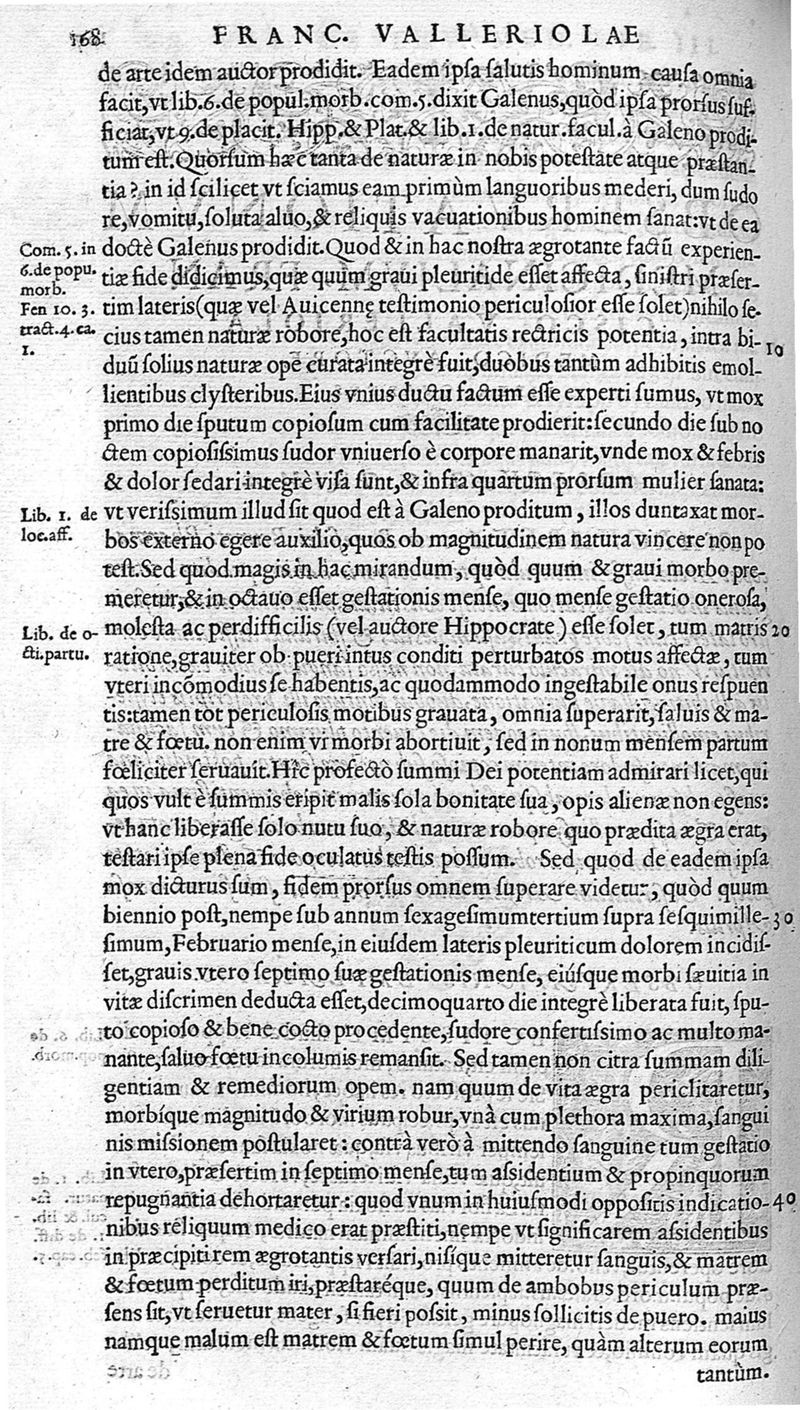 168 FRANC. VALLERIOLAE
de arte idem auctor prodidit. Eadem ipſa ſalutis hominum cauſa omnia
facit, vt lib. 6. de popul. morb. com. 5. dixit Galenus, quòd ipſa prorſus ſuf-
ficiat, vt 9. de placit. Hipp. & Plat. & lib. 1. de natur. facul. à Galeno prodi-
tum eſt. Quorſum hæc tanta de naturæ in nobis poteſtate atque præſtan-
tia? in id ſcilicet vt ſciamus eam primùm languoribus mederi, dum ſudo
re, vomitu, ſoluta aluo, & reliquis vacuationibus hominem ſanat: vt de ea
Com. 5. in
6. de popu.
morb.
Fen 10. 3.
tract. 4. ca.
1.
doctè Galenus prodidit. Quod & in hac noſtra ægrotante factũ experien-
tiæ fide didicimus, quæ quùm graui pleuritide eſſet affecta, ſiniſtri præſer-
tim lateris (quæ vel Auicennę teſtimonio periculoſior eſſe ſolet) nihilo ſe-
cius tamen naturæ robore, hoc eſt facultatis rectricis potentia, intra bi-
10
duũ ſolius naturæ ope curata integrè fuit, duobus tantùm adhibitis emol-
lientibus clyſteribus. Eius vnius ductu factum eſſe experti ſumus, vt mox
primo die ſputum copioſum cum facilitate prodierit: ſecundo die ſub no
ctem copioſiſsimus ſudor vniuerſo è corpore manarit, vnde mox & febris
& dolor ſedari integrè viſa ſunt, & infra quartum prorſum mulier ſanata:
Lib. 1. de
loc. aff.
vt veriſsimum illud ſit quod eſt à Galeno proditum, illos duntaxat mor-
bos externo egere auxilio, quos ob magnitudinem natura vincere non po
teſt. Sed quòd magis in hac mirandum, quòd quum & graui morbo pre-
meretur, & in octauo eſſet geſtationis menſe, quo menſe geſtatio oneroſa,
Lib. de o-
cti. partu.
moleſta ac perdifficilis (vel auctore Hippocrate) eſſe ſolet, tum matris
20
ratione, grauiter ob pueri intus conditi perturbatos motus affectæ, tum
vteri incõmodius ſe habentis, ac quodammodo ingeſtabile onus reſpuen
tis: tamen tot periculoſis motibus grauata, omnia ſuperarit, ſaluis & ma-
tre & fœtu. non enim vi morbi abortiuit, ſed in nonum menſem partum
fœliciter ſeruauit. Hîc profectò ſummi Dei potentiam admirari licet, qui
quos vult è ſummis eripit malis ſola bonitate ſua, opis alienæ non egens:
vt hanc liberaſſe ſolo nutu ſuo, & naturæ robore quo prædita ægra erat,
teſtari ipſe plena fide oculatus teſtis poſſum. Sed quod de eadem ipſa
mox dicturus ſum, fidem prorſus omnem ſuperare videtur, quòd quum
biennio poſt, nempe ſub annum ſexageſimumtertium ſupra ſeſquimille-
30
ſimum, Februario menſe, in eiuſdem lateris pleuriticum dolorem incidiſ-
ſet, grauis vtero ſeptimo ſuæ geſtationis menſe, eiúſque morbi ſæuitia in
vitæ diſcrimen deducta eſſet, decimoquarto die integrè liberata fuit, ſpu-
to copioſo & bene cocto procedente, ſudore confertiſsimo ac multo ma-
nante, ſaluo fœtu incolumis remanſit. Sed tamen non citra ſummam dili-
gentiam & remediorum opem. nam quum de vita ægra periclitaretur,
morbíque magnitudo & virium robur, vnà cum plethora maxima, ſangui
nis miſsionem poſtularet: contrà verò à mittendo ſanguine tum geſtatio
in vtero, præſertim in ſeptimo menſe, tum aſsidentium & propinquorum
repugnantia dehortaretur: quod vnum in huiuſmodi oppoſitis indicatio-
40
nibus reliquum medico erat præſtiti, nempe vt ſignificarem aſsidentibus
in præcipiti rem ægrotantis verſari, niſíque mitteretur ſanguis, & matrem
& fœtum perditum iri, præſtaréque, quum de ambobus periculum præ-
ſens ſit, vt ſeruetur mater, ſi fieri poſsit, minus ſollicitis de puero. maius
namque malum eſt matrem & fœtum ſimul perire, quàm alterum eorum
tantùm.